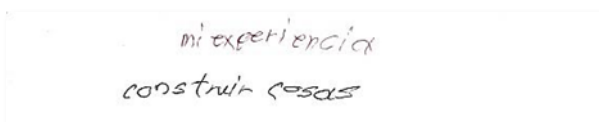 mi experiencia
construir cosas